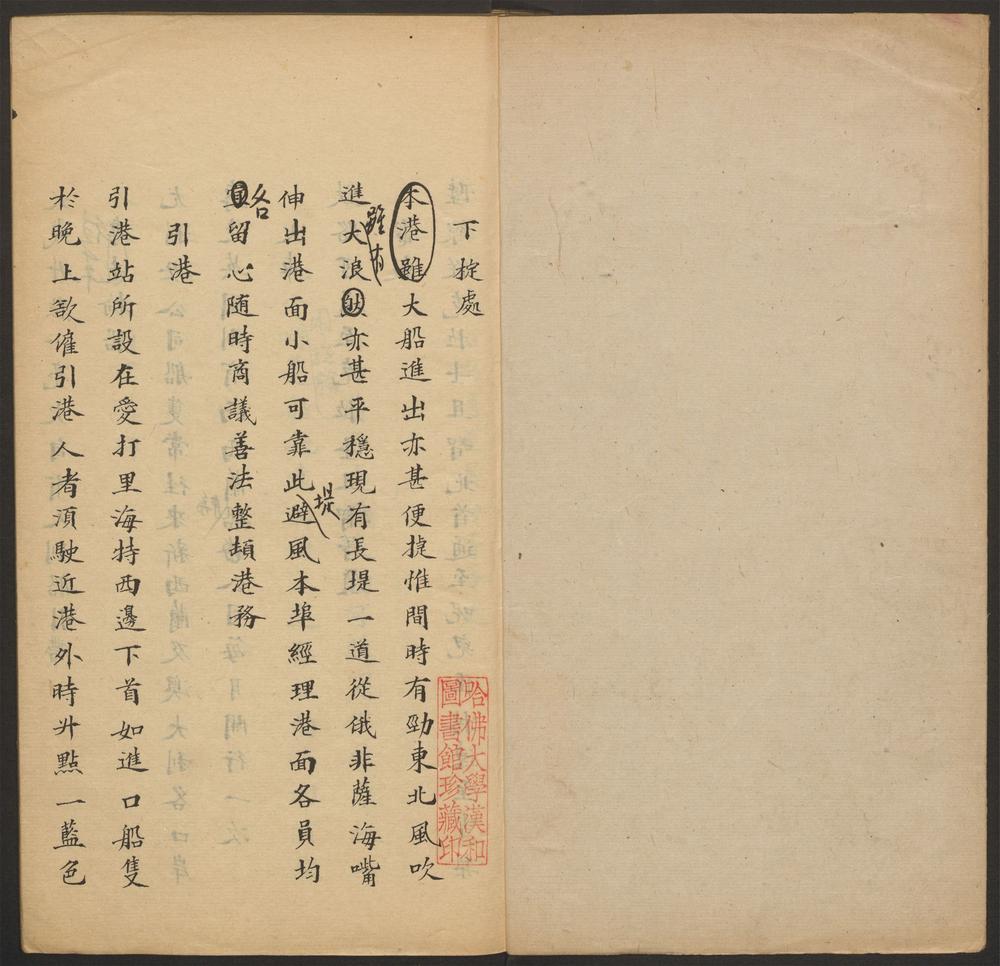 下椗處
本港雖大船進出亦甚便捷惟間時有勁東北風吹
進大浪雖有然亦甚平穩現有長堤一道從俄非薩海嘴
伸出港面小船可靠此堤避風本埠經理港面各員均
宜畧留心随時商議善法整頓港務
引港
引港站所設在愛打里海特西邊下首如進口船隻
於晚上欲僱引港人者湏駛近港外時升點一藍色
哈佛大學漢和
圖書館珍藏印